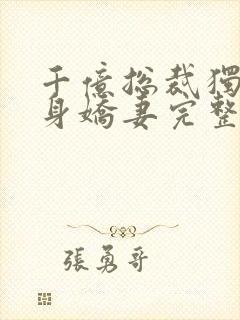 千億總裁獨
身嬌妻完整
張勇哥